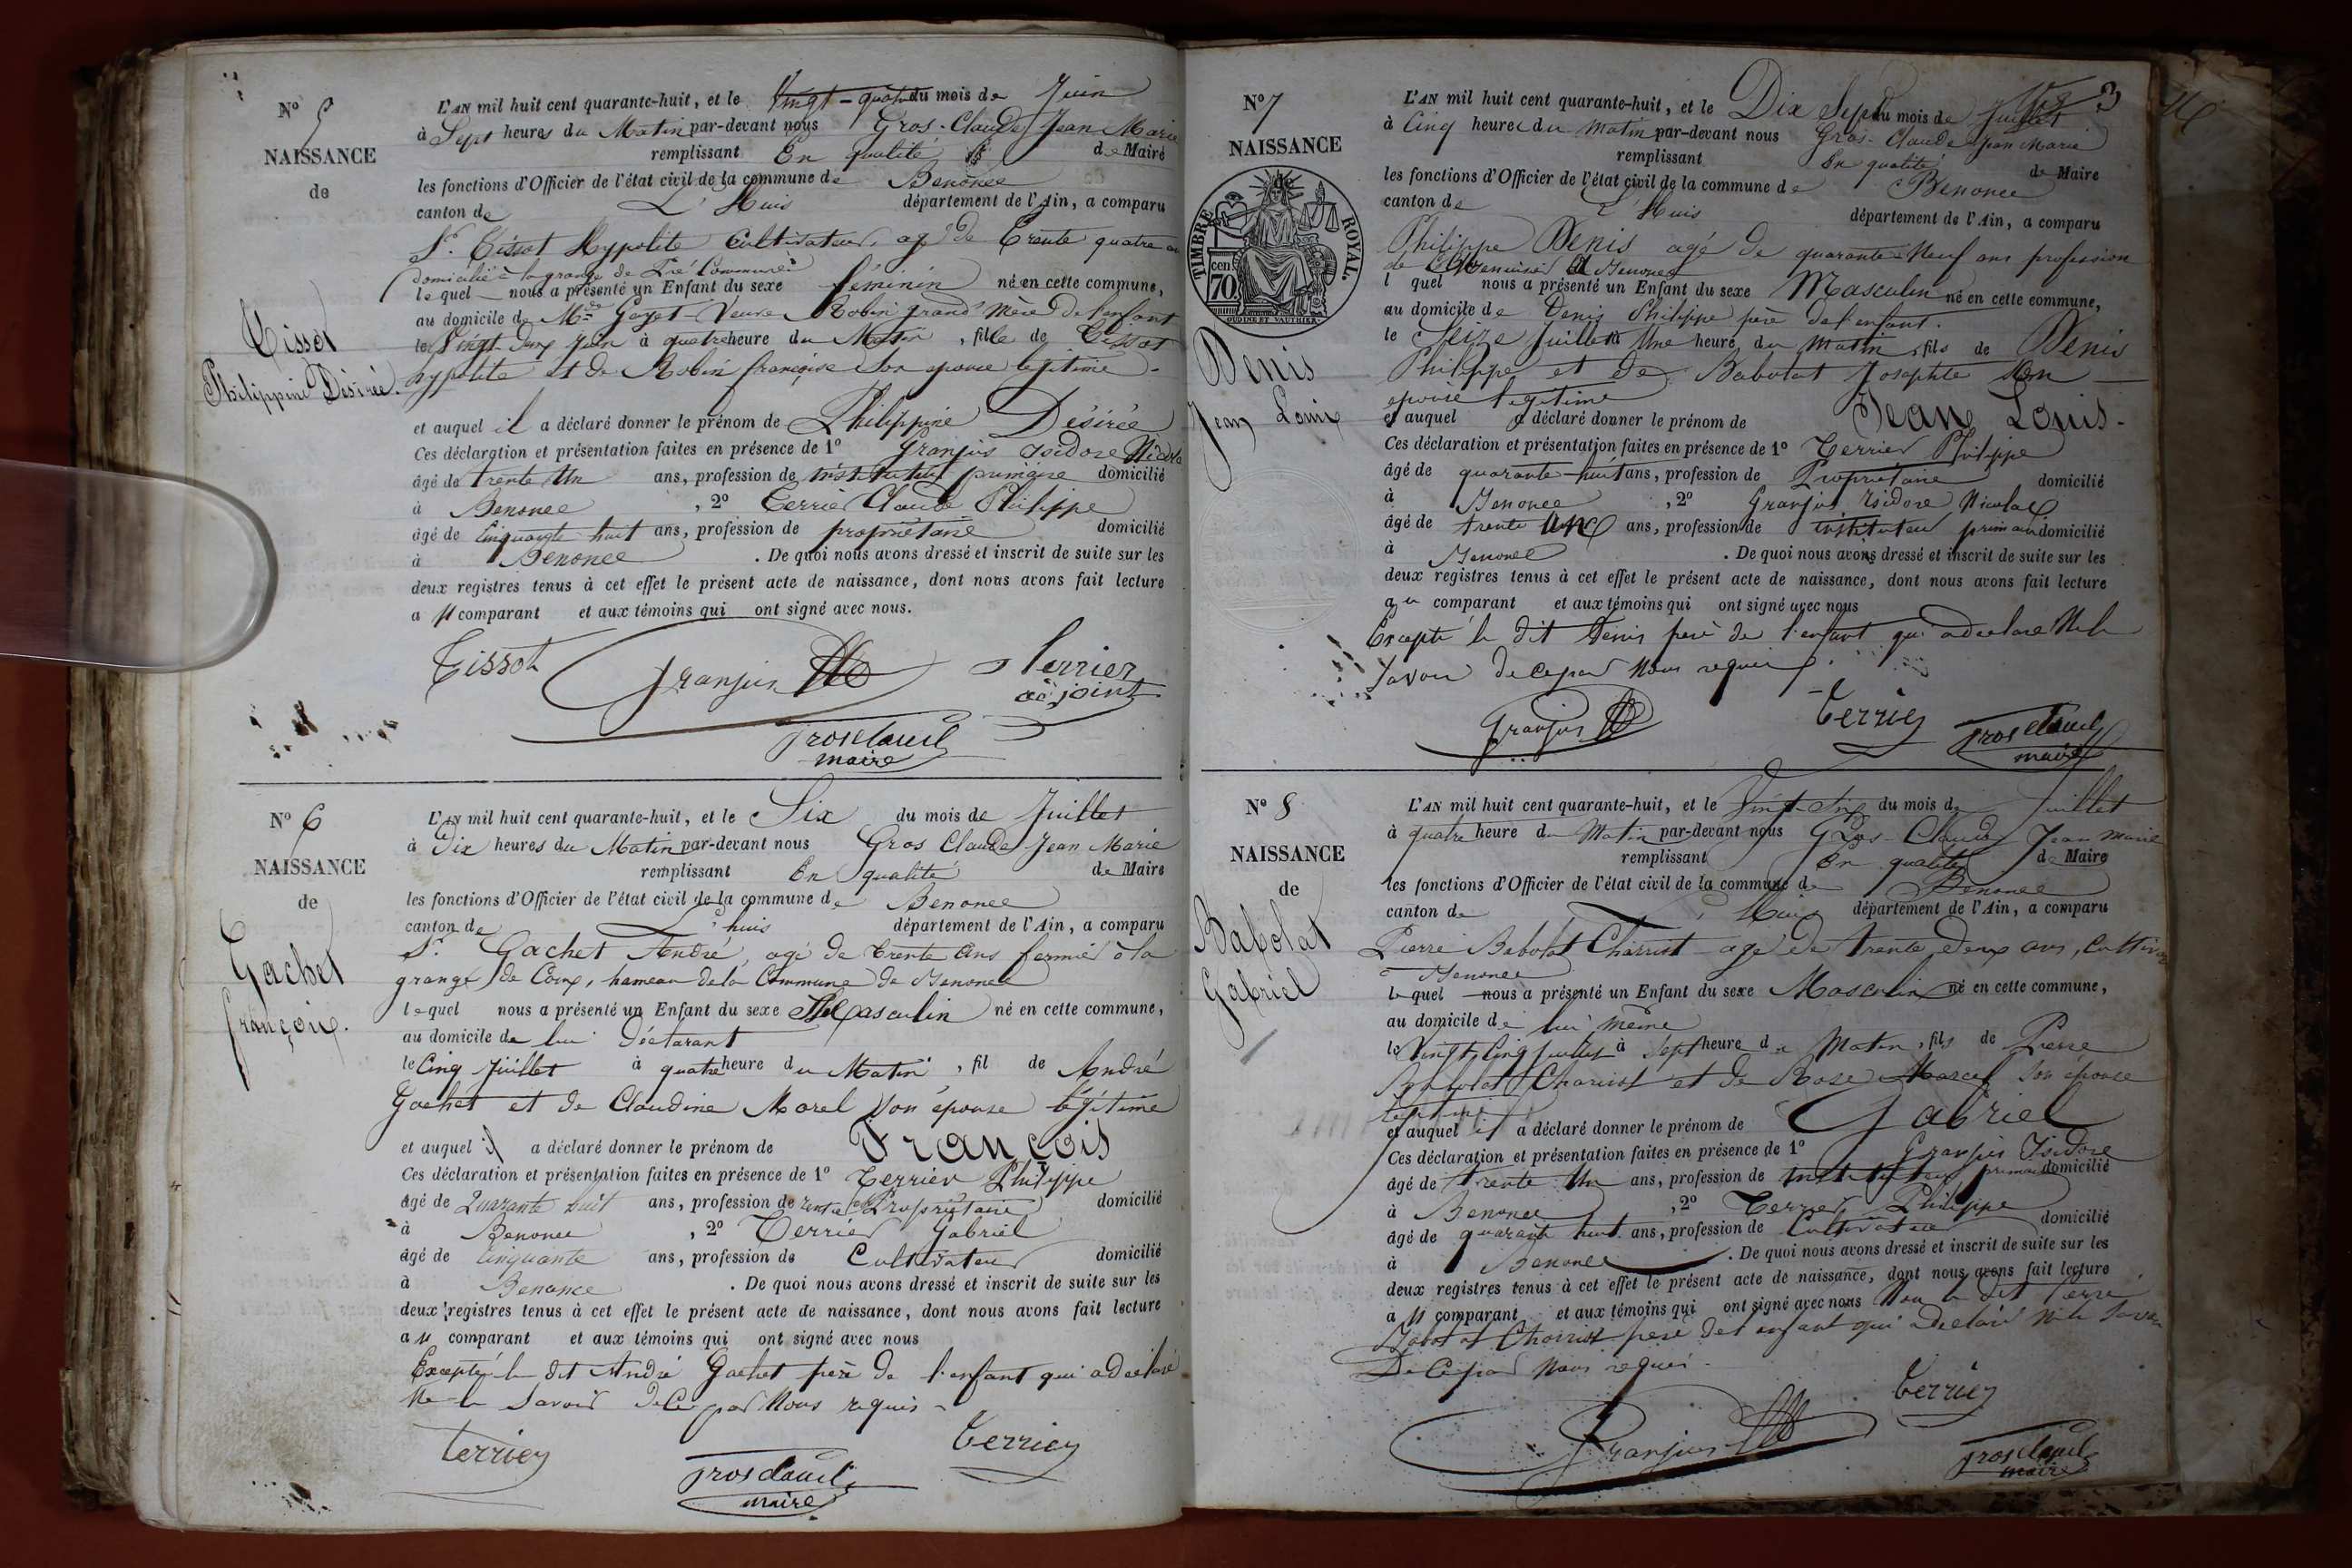 N° 5
NAISSANCE
de
Tissot
Philippine Désirée.
L'AN mil huit cent quarante-huit, et le Vingt-quatre du mois de Juin
à Sept heures du Matin par-devant nous Gros-Claude Jean Marie
remplissant En qualité de Maire
les fonctions d'Officier de l'état civil de la commune de Benonce
canton de L'Huis département de l'Ain, a comparu
Sr. Tissot Hypolite Cultivateur, agé de Trente quatre an
domicilié à la grange de Pré Communé
lequel nous a présenté un Enfant du sexe féminin né en cette commune,
au domicile de Goyet Veuve Robin grand'mère de l'enfant
le Vingt deux Juin à quatre heure du Matin, fille de Tissot
hypolite et de Robin françoise Son epouse legitime.
et auquel il a déclaré donner le prénom de Philippine Désirée
Ces déclaration et présentation faites en présence de 1° Granjus Isidore Nicolas
âgé de trente Un ans, profession de instituteur primaire domicilié
à Benonce, 2° Terrier Claude Philippe
âgé de Cinquante huit ans, profession de propriétaire domicilié
à Benonce. De quoi nous avons dressé et inscrit de suite sur les
deux registres tenus à cet effet le présent acte de naissance, dont nous avons fait lecture
au comparant et aux témoins qui ont signé avec nous.
Tissot Granjus Terrier
adjoint
Grosclaude
maire
N° 6
NAISSANCE
de
Gachet
françois.
L'AN mil huit cent quarante-huit, et le Six du mois de Juillet
à Dix heures du Matin par-devant nous Gros Claude Jean Marie
remplissant En qualité de Maire
les fonctions d'Officier de l'état civil de la commune de Benonce
canton de L'huis département de l'Ain, a comparu
Sr. Gachet André, agé de trente ans fermier à la
grange de Coux, hameau de la Commune de Benonce
lequel nous a présenté un Enfant du sexe Masculin né en cette commune,
au domicile de lui Déclarant
le Cinq Juillet à quatre heure du Matin, fil de André
Gachet et de Claudine Morel Son épouse légitime
et auquel il a déclaré donner le prénom de François
Ces déclaration et présentation faites en présence de 1° Terrier Philippe
âgé de Quarante huit ans, profession de Propriétaire domicilié
à Benonce, 2° Terrier Gabriel
âgé de Cinquante ans, profession de Cultivateur domicilié
à Benonce. De quoi nous avons dressé et inscrit de suite sur les
deux registres tenus à cet effet le présent acte de naissance, dont nous avons fait lecture
au comparant et aux témoins qui ont signé avec nous
Excepté le dit André Gachet père de l'enfant qui a declaré
Ne le Savoir de Ce par Nous requis
Terrier Grosclaude Terrier
maire
3
N° 7
NAISSANCE
de
TIMBRE ROYAL.
70 cen
OUDINE ET VAUTHIER.
Denis
Jean Louis
L'AN mil huit cent quarante-huit, et le Dix Sept du mois de Juillet
à Cinq heures du matin par-devant nous Gros-Claude Jean Marie
remplissant En qualité de Maire
les fonctions d'Officier de l'état civil de la commune de Benonce
canton de L'Huis département de l'Ain, a comparu
Philippe Denis agé de quarante-Neuf ans profession
de Menuisier à Benonce
lequel nous a présenté un Enfant du sexe Masculin né en cette commune,
au domicile de Denis Philippe père de l'enfant.
le Seize Juillet à Une heure du matin, fils de Denis
Philippe et de Babolat Josephte Son
epouse legitime
et auquel a déclaré donner le prénom de Jean Louis.
Ces déclaration et présentation faites en présence de 1° Terrier Philippe
âgé de quarante-huit ans, profession de Propriétaire domicilié
à Benonce, 2° Granjus Isidore Nicolas
âgé de trente Un ans, profession de instituteur primaire domicilié
à Benonce. De quoi nous avons dressé et inscrit de suite sur les
deux registres tenus à cet effet le présent acte de naissance, dont nous avons fait lecture
au comparant et aux témoins qui ont signé avec nous
Excepté le dit Denis père de l'enfant qui a declaré Ne le
Savoir de ce par Nous requis.
Granjus Terrier Grosclaude
maire
N° 8
NAISSANCE
de
Babolat
Gabriel
L'AN mil huit cent quarante-huit, et le Vingt-Six du mois de Juillet
à quatre heure du Matin par-devant nous Gros-Claude Jean Marie
remplissant En qualité de Maire
les fonctions d'Officier de l'état civil de la commune de Benonce
canton de L'Huis département de l'Ain, a comparu
Pierre Babolat Charriot agé de trente deux ans, Cultiva
à Benonce
lequel nous a présenté un Enfant du sexe Masculin né en cette commune,
au domicile de lui même
le Vingt Cinq Juillet à Sept heure du Matin, fils de Pierre
Babolat Charriot et de Rose Marcel Son épouse
legitime
et auquel il a déclaré donner le prénom de Gabriel
Ces déclaration et présentation faites en présence de 1° Granjus Isidore
âgé de trente Un ans, profession de Instituteur primaire domicilié
à Benonce, 2° Terrier Philippe
âgé de quarante huit ans, profession de Cultivateur domicilié
à Benonce. De quoi nous avons dressé et inscrit de suite sur les
deux registres tenus à cet effet le présent acte de naissance, dont nous avons fait lecture
au comparant et aux témoins qui ont signé avec nous Non le dit Pierre
Babolat Charriot père de l'enfant qui a declaré Ne le Savoir
De Ce par Nous requis.
Granjus Terrier
Grosclaude
maire